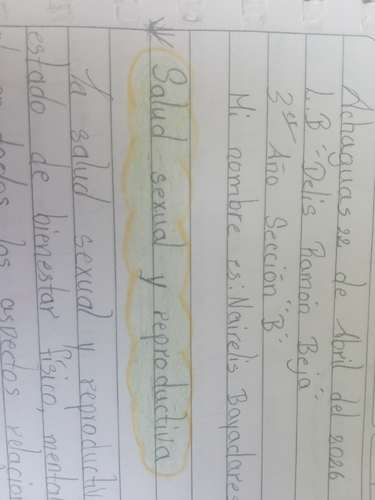 Achaguas 22 de Abril del 2026
L.B "Delis Ramón Beja"
3er Año Sección "B"
Mi nombre es: Naicelis Bayadares
Salud sexual y reproductiva
la salud sexual y reproductiv
estado de bienestar físico, menta
todos los aspectos relacion